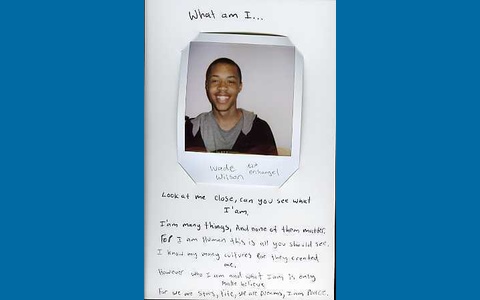 What am I...
Wade
Wilson
Look at me close, can you see what
I'am.
I'am many things, And none of them matter.
For I am Human this is all you should see.
I know my many cultures for they created
me,
However who I am and what I am is only
make believe
For we are stars, fire, we are Dreams, I am